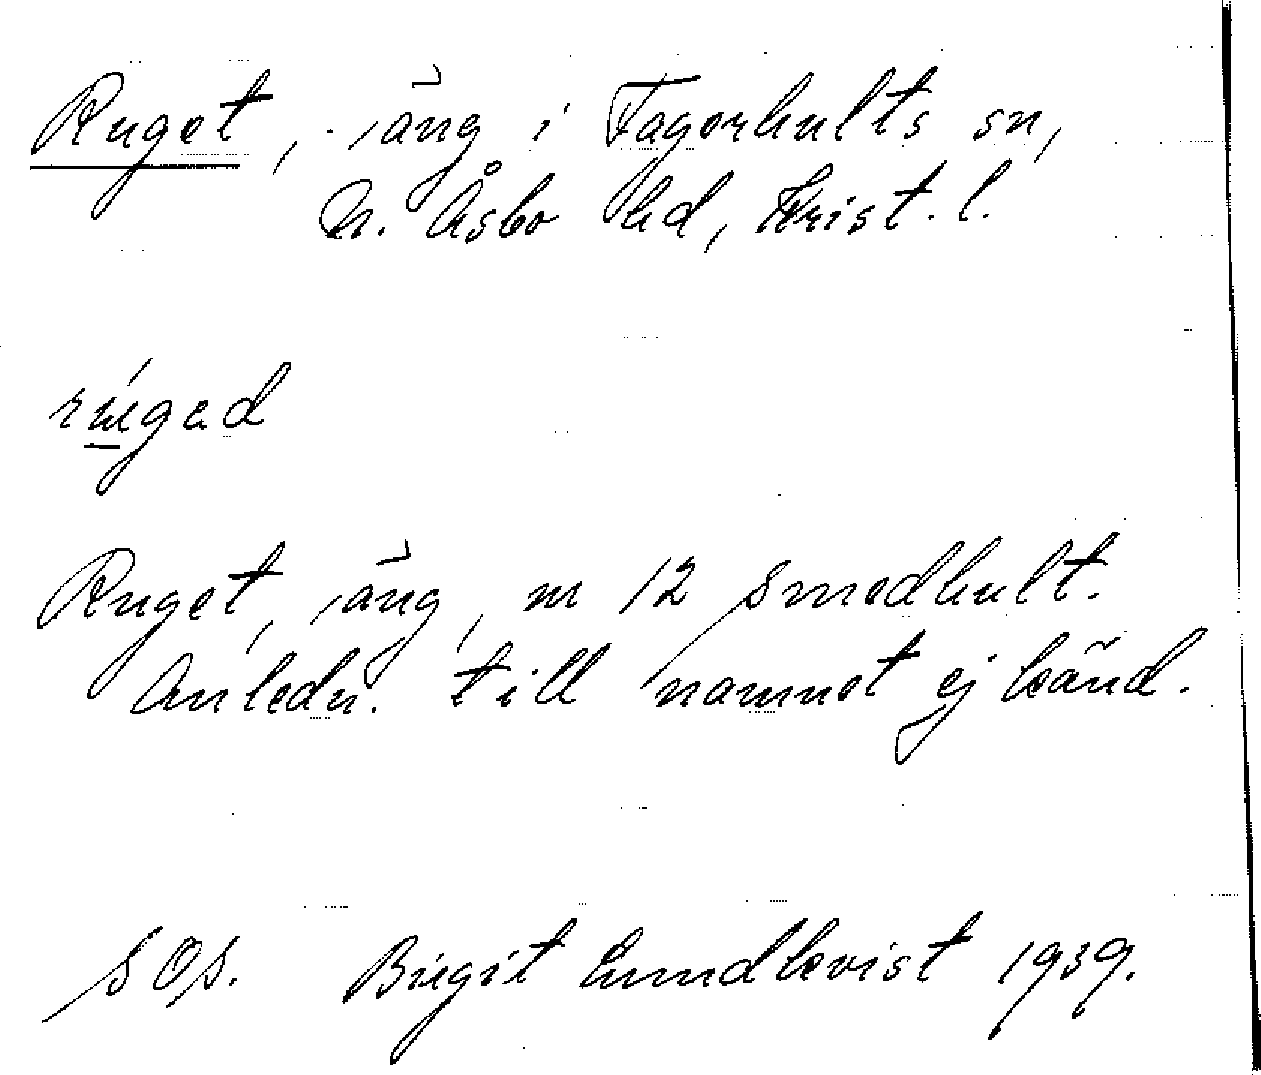 Ruget, äng i Fagerhults sn,
N. Åsbo hd, Krist. l.
rúgad
Ruget, äng, nr 12 Smedhult.
Anledn. till namnet ej känd.
SOS. Birgit Lundkvist 1939.